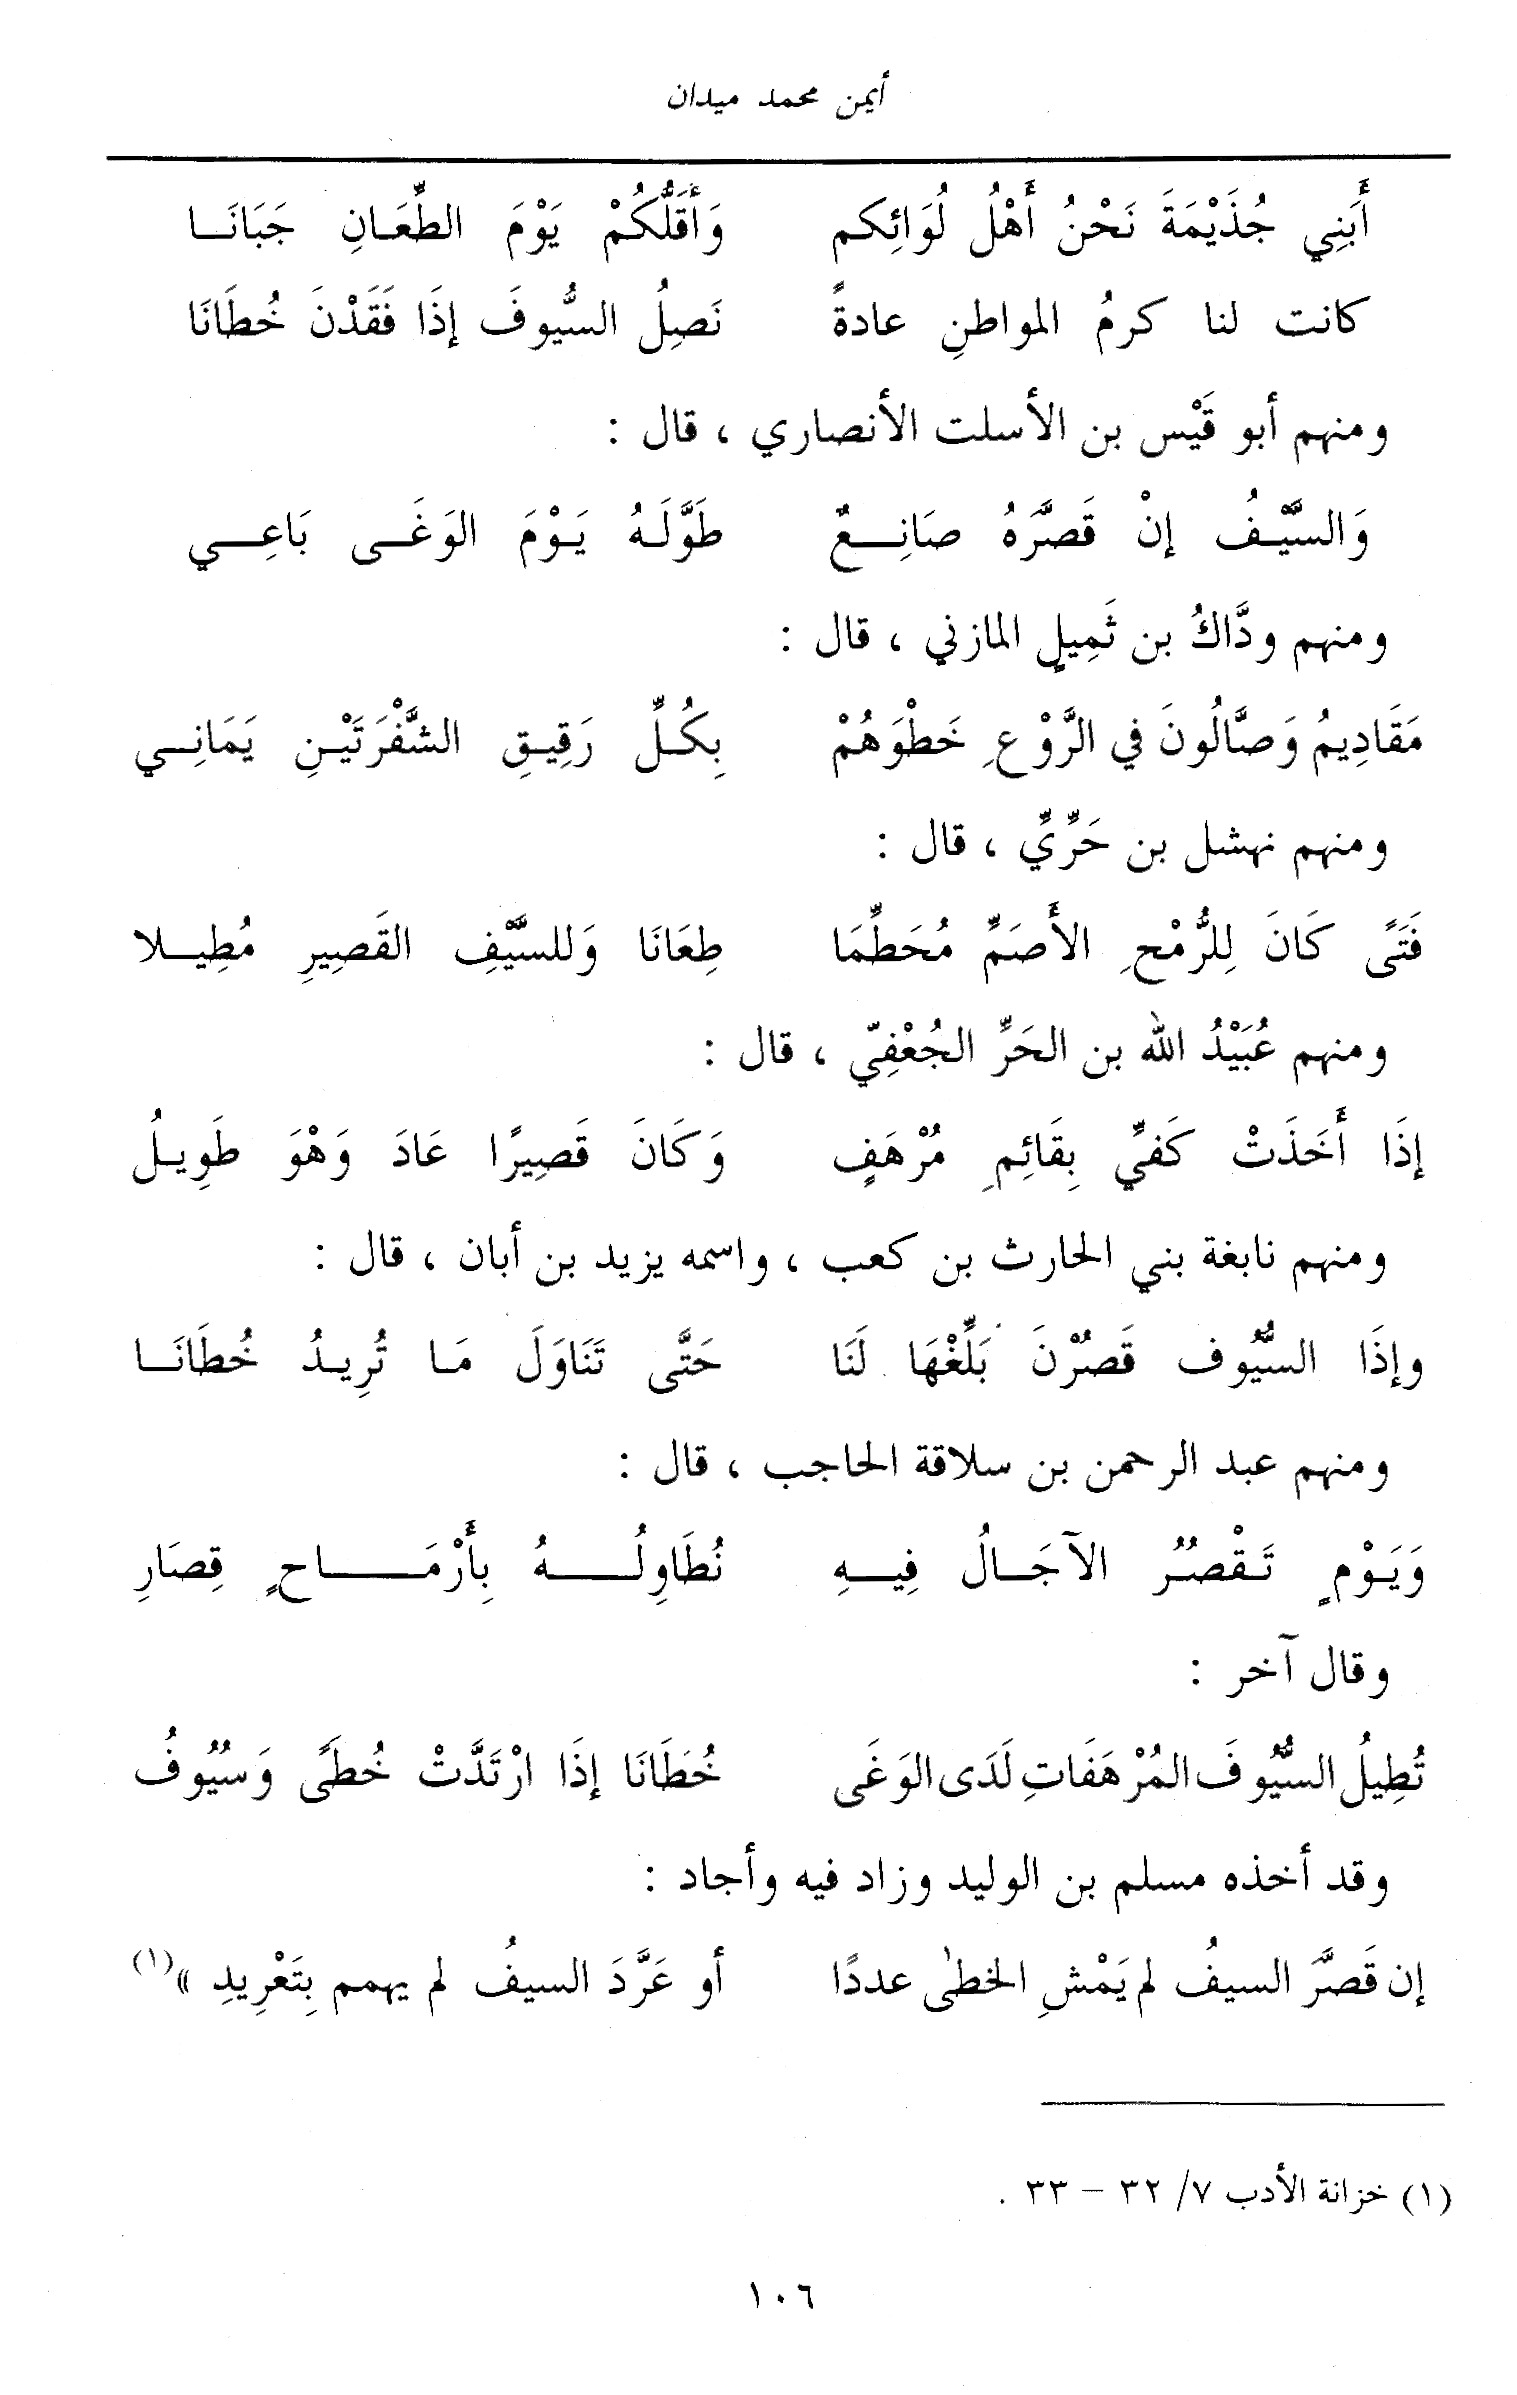 أيمن محمد ميدان
أَبَنِي جُذَيْمَةَ نَحْنُ أَهْلُ لُوَائِكم وَأَقَلُّكُمْ يَوْمَ الطِّعَـانِ جَبَانَـا
كانت لنا كرمُ المواطنِ عادةً نَصِلُ السُّيوفَ إذَا فَقَدْنَ خُطَانَا
ومنهم أبو قَيْس بن الأسلت الأنصاري ، قال :
وَالسَّيْـفُ إنْ قَصَّرَهُ صَانِـعٌ طَوَّلَـهُ يَـوْمَ الوَغَـى بَاعِـي
ومنهم ودَّاكُ بن ثَمِيلٍ المازني ، قال :
مَقَادِيمُ وَصَّالُونَ في الرَّوْعِ خَطْوَهُمْ بِكُـلِّ رَقِيـقِ الشَّفْرَتَيْـنِ يَمَانِـي
ومنهم نهشل بن حَرِّيٍّ ، قال :
فَتَىً كَانَ لِلرُّمْحِ الأَصَمِّ مُحَطِّمَا طِعَانَا وَللسَّيْفِ القَصِيرِ مُطِيـلا
ومنهم عُبَيْدُ الله بن الحَرِّ الجُعْفِيّ ، قال :
إذَا أَخَذَتْ كَفيِّ بِقَائِمِ مُرْهَفٍ وَكَانَ قَصِيرًا عَادَ وَهْوَ طَوِيـلُ
ومنهم نابغة بني الحارث بن كعب ، واسمه يزيد بن أبان ، قال :
وإذَا السُّيُوف قَصُرْنَ بَلِّغْهَا لَنَا حَتَّى تَنَاوَلَ مَـا تُرِيـدُ خُطَانَـا
ومنهم عبد الرحمن بن سلاقة الحاجب ، قال :
وَيَـوْمٍ تَـقْصُرُ الآجَـالُ فِيـهِ نُطَاوِلُـهُ بِأَرْمَـاحٍ قِصَارِ
وقال آخر :
تُطِيلُ السُّيُوفَ المُرْهَفَاتِ لَدَى الوَغَى خُطَانَا إذَا ارْتَدَّتْ خُطىً وَسُيُوفُ
وقد أخذه مسلم بن الوليد وزاد فيه وأجاد :
إن قَصَّرَ السيفُ لم يَمْشِ الخطىٰ عددًا أو عَرَّدَ السيفُ لم يهمم بِتَعْرِيدِ »(١)
(١) خزانة الأدب ٧/ ٣٢ - ٣٣ .
١٠٦